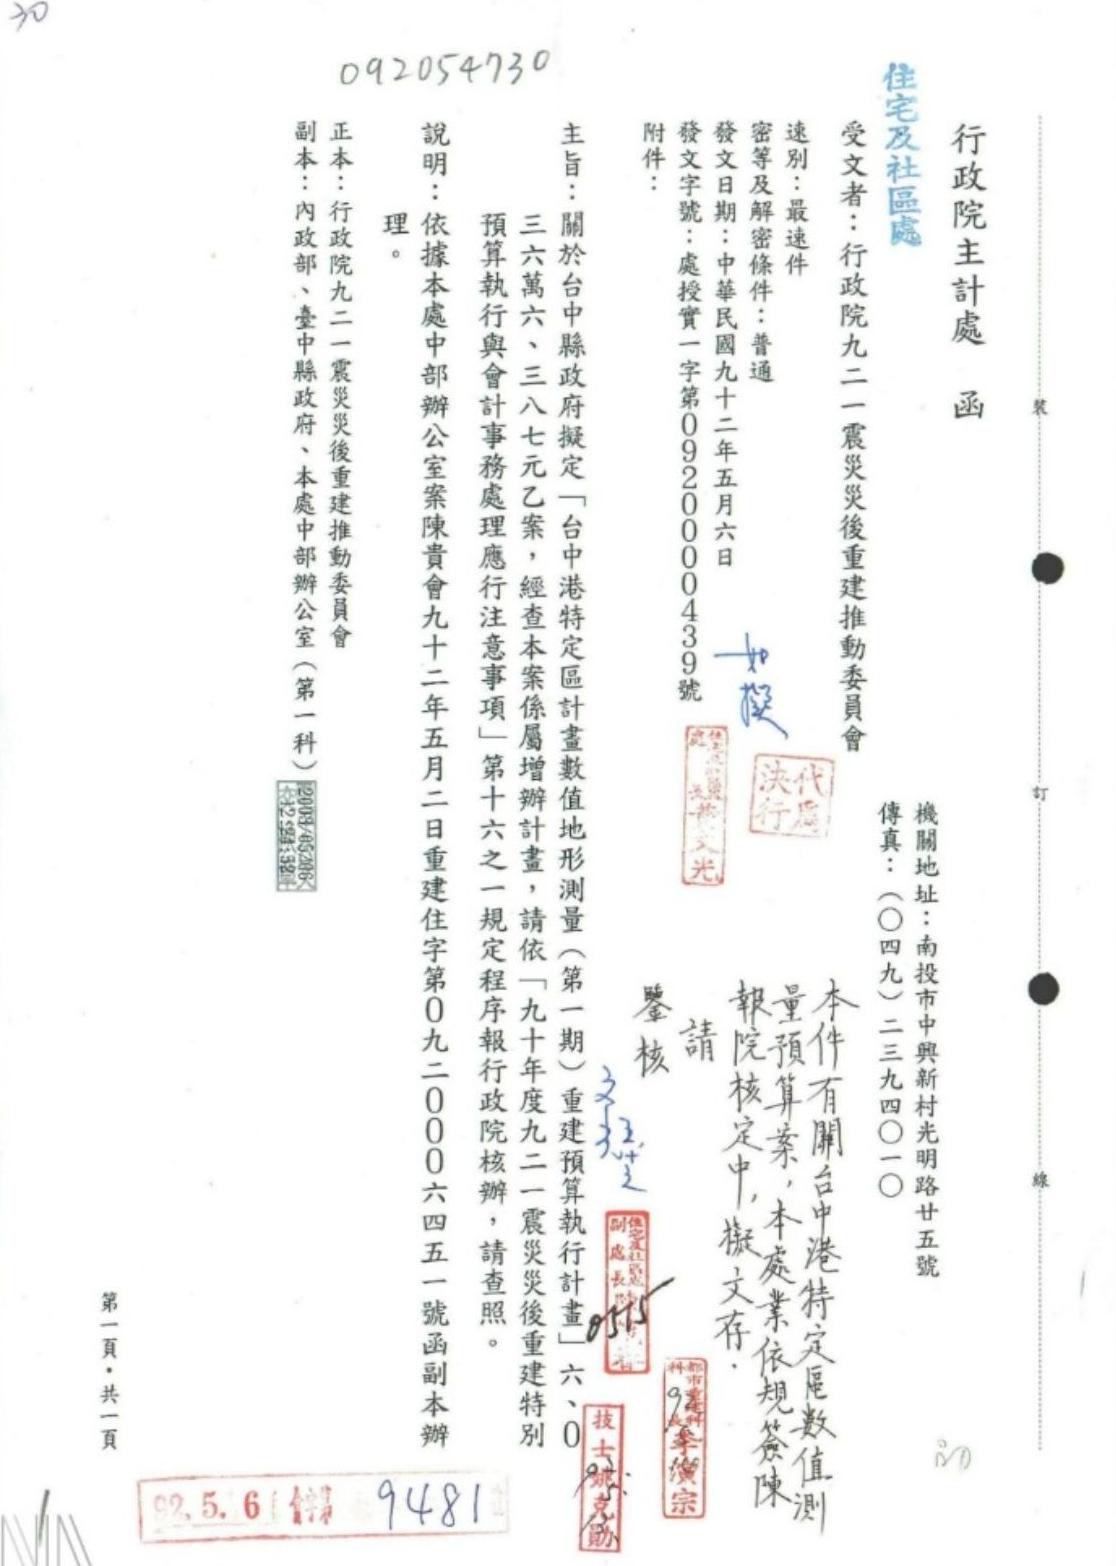 30
092054730
行政院主計處　函
住宅及社區處
機關地址：南投市中興新村光明路廿五號
傳真：（〇四九）二三九四〇一〇
受文者：行政院九二一震災災後重建推動委員會
速別：最速件
密等及解密條件：普通
發文日期：中華民國九十二年五月六日
發文字號：處授實一字第0920000439號
附件：
主旨：關於台中縣政府擬定「台中港特定區計畫數值地形測量（第一期）重建預算執行計畫」六、0
三六萬六、三八七元乙案，經查本案係屬增辦計畫，請依「九十年度九二一震災災後重建特別
預算執行與會計事務處理應行注意事項」第十六之一規定程序報行政院核辦，請查照。
說明：依據本處中部辦公室案陳貴會九十二年五月二日重建住字第0九二000六四五一號函副本辦
理。
正本：行政院九二一震災災後重建推動委員會
副本：內政部、臺中縣政府、本處中部辦公室（第一科）
如擬
代為
決行
本件有關台中港特定區數值測
量預算案，本處業依規簽陳
報院核定中，擬文存．
請
鑒核
住宅及社區處
副處長
0515
都市重建科
科長
技士姚克勛
82.5.6
9481
裝
訂
線
第一頁・共一頁